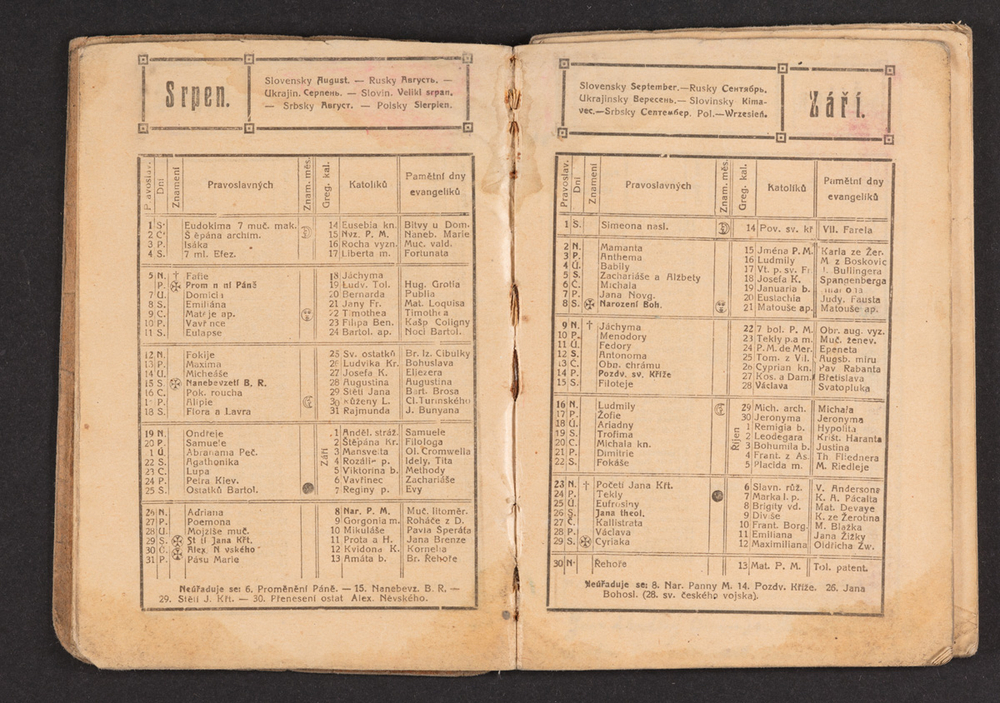 Srpen.
Slovensky August. — Rusky Августъ. —
Ukrajin. Серпень. — Slovin. Veliki srpan.
— Srbsky Август. — Polsky Sierpien.
Pravoslav. Dni Znamení Pravoslavných Znam. měs. Greg. kal. Katolíků Pamětní dny evangelíků
1 S. Eudokima 7 muč. mak. 14 Eusebia kn. Bitvy u Dom.
2 archim. 15 Nvz. P. M. Naneb. Marie
3 P. Isáka 16 Rocha vyzn. Muc. vald.
4 S. 7 ml. Efez. 17 Liberta m. Fortunata
5 N. † Fafie 18 Jáchyma
P. Prom ní Páně 19 Ludv. Tol. Hug. Grotia
7 Ú. 20 Bernarda Publia
8 S. Emiliána 21 Jany Fr. Mat. Loquisa
9 Č. ap. 22 Timothea
10 P. 23 Filipa Ben. Kašp Coligny
11 S. Eulapse 24 Bartol. ap. Noci Bartol.
12 N. Fokije 25 Sv. ostatků Br. Iz. Cibulky
13 P. Maxima 26 Ludvika Kr. Bohuslava
14 Ú. Micheáše 27 Josefa K. Eliezera
15 S. Nanebevzetí B. R. 28 Augustina Augustina
16 Č. Pok. roucha 29 Stětí Jana Bart. Brosa
P. Alipie 30 Růženy L. Cl. Turinského
18 S. Flora a Lavra 31 Rajmunda J. Bunyana
19 N. Ondřeje Září 1 Anděl. stráž. Samuele
20 P. Samuele 2 Štěpána Kr. Filologa
Ú. Abrahama Peč. 3 Mansveita Ol. Cromwella
22 S. Agathonika 4 Rozálie p. Idely, Tita
23 Č. Lupa 5 Viktorina b. Methody
24 P. Petra Kiev. 6 Vavřinec Zachariáše
25 S. Ostatků Bartol. 7 Reginy p. Evy
26 N. Adriana 8 Nar. P. M. Muč. litoměr.
27 P. Poemona 9 Gorgonia m. Roháče z D.
28 Ú. Mojžíše muč. 10 Mikuláše Pavla Speráta
29 S. Jana Křt. 11 Prota a H. Jana Brenze
30 Č. Alex. Nevského 12 Kvidona K. Kornelia
31 P. Pásu Marie 13 Amáta b. Br. Řehoře
Neúřaduje se: 6. Proměnění Páně. — 15. Nanebevz. B. R. —
29. Stětí J. Křt. — 30. Přenesení ostat Alex. Něvského.
Slovensky September.—Rusky Сентябрь.
Ukrajinsky Вересень.—Slovinsky Kima-
vec.—Srbsky Септембер. Pol.—Wrzesień.
Září.
Pravoslav. Dni Znamení Pravoslavných Znam. měs. Greg. kal. Katolíků Pamětní dny evangelíků
1 S. Simeona nasl. 14 Pov. sv. kř Vil. Farela
2 N. Mamanta 15 Jména P. M. Karla ze Žer.
3 P. Anthema 16 Ludmily M. z Boskovic
4 Ú. Babily 17 Vt. p. sv. Fr. J. Bullingera
5 S. Zachariáše a Alžbety 18 Josefa K. Spangenberga
6 Č. Michala 19 Januaria b.
7 P. Jana Novg. 20 Eustachia Judy. Fausta
8 S. Narození Boh. 21 Matouše ap. Matouše ap.
9 N. † Jáchyma 22 7 bol. P. M. Obr. aug. vyz.
10 P. Menodory 23 Tekly p.a m. Muč. ženev.
11 Ú. Fedory 24 P. M. de Mer. Epeneta
12 S. Antonoma 25 Tom. z Vil. Augsb. míru
13 Č. Obn. chrámu 26 Cyprian kn. Pav Rabanta
14 P. Pozdv. sv. Kříže 27 Kos. a Dam. Břetislava
15 S. Filoteje 28 Václava Svatopluka
16 N. Ludmily 29 Mich. arch. Michala
17 P. Žofie 30 Jeronyma Jeronyma
18 Ú. Ariadny Říjen 1 Remigia b. Hypolita
19 S. Trofima 2 Leodegara Krišt. Haranta
20 Č. Michala kn. 3 Bohumila b. Justina
21 P. Dimitrie 4 Frant. z As. Th Fliednera
22 S. Fokáše 5 Placida m. M. Riedleje
23 N. † Početí Jana Křt. 6 Slavn. růž. V. Andersona
24 P. Tekly 7 Marka I. p. K. A. Pácalta
25 Ú. Eufrosiny 8 Brigity vd. Mat. Devaye
26 S. Jana theol. 9 Diviše K. ze Žerotína
27 Č. Kallistrata 10 Frant. Borg. M. Blažka
28 P. Václava 11 Emiliana Jana Žižky
29 S. Cyriaka 12 Maximiliana Oldřicha Zw.
30 N. Řehoře 13 Mat. P. M. Tol. patent.
Neúřaduje se: 8. Nar. Panny M. 14. Pozdv. Kříže. 26. Jana
Bohosl. (28. sv. českého vojska).